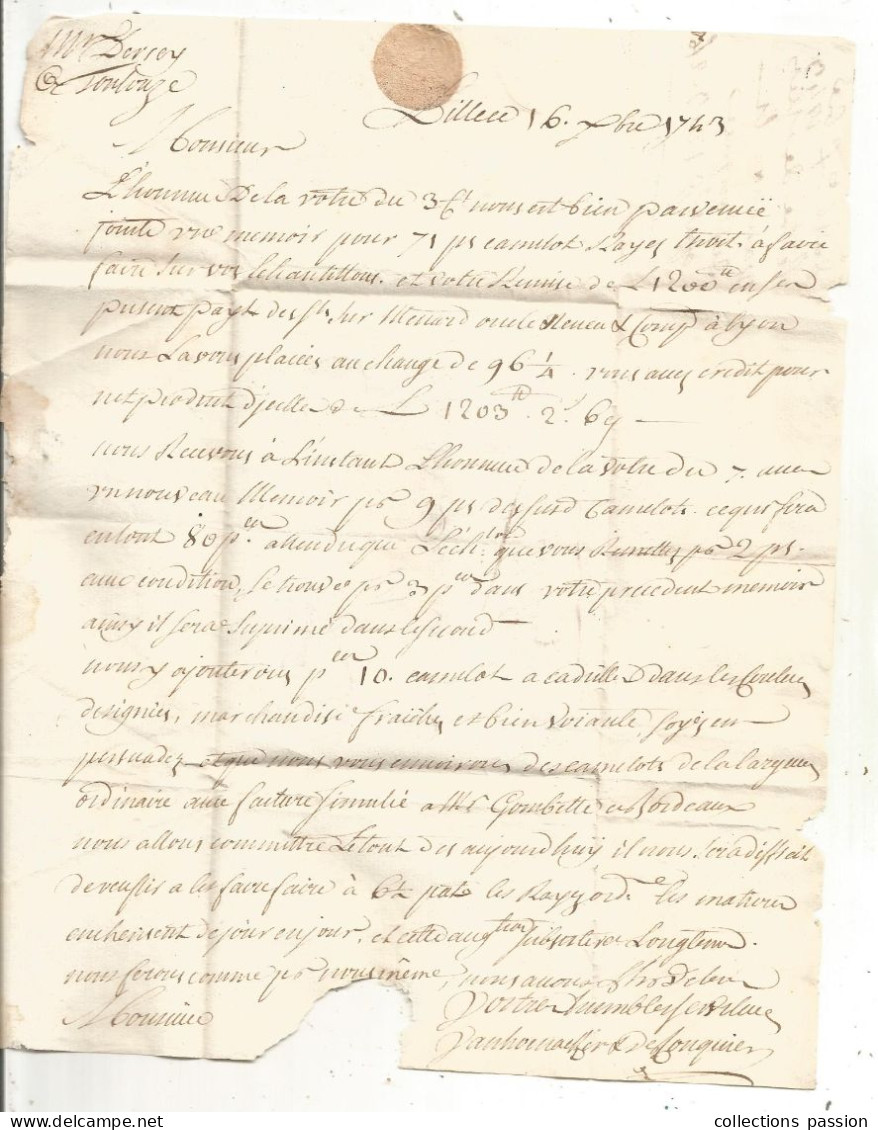 Mr Dersey
a Toulouze
Lille ce 16. xbre 1743
Monsieur
L'honneur De la votre du 3 Ct nous est bien parvenuë
jointe un memoir pour 71 ps camelot Rayes à faire
faire sur vos Echantillons et votre Remise de L 1200 tt en
payt des sts sur Menard oncle Neveu & Comp à Lyon
nous L'avons placées au change de 96 1/4. vous avez credit pour
net produit d'jcelle de L 1203 tt 2 s 6 d
nous Recevons à L'instant L'honneur de la votre du 7. avec
un nouveau Memoir pr 9 ps desusd Camelots ce qui fera
en tout 80 pces attendu que L'échlon que vous Remettes pr 2 ps.
aux condition, se trouve pr 3 pces dans votre precedent memoir
ainsy il sera suprimé dans le second
nous y ajouterons pces 10. camelot a cadille Dans les Couleurs
designées, marchandise fraiche et bien voiante, soyes en
persuadez et que nous vous envoirons des camelots de la largeur
ordinaire avec facture simulié a Mr Gombette de Bordeaux
nous allons committre Le tout des aujourdhuy il nous sera difficil
de reussir a les faire faire à les Rayez ord. les matieres
encherissent de jour en jour, et cette augtion subsistera Longtems.
nous ferons comme pr nous même, nous avons L'hr D'etre
Monsieur
Vostre humbles serviteurs
Vanhoenacker & Delonquier
collections passion